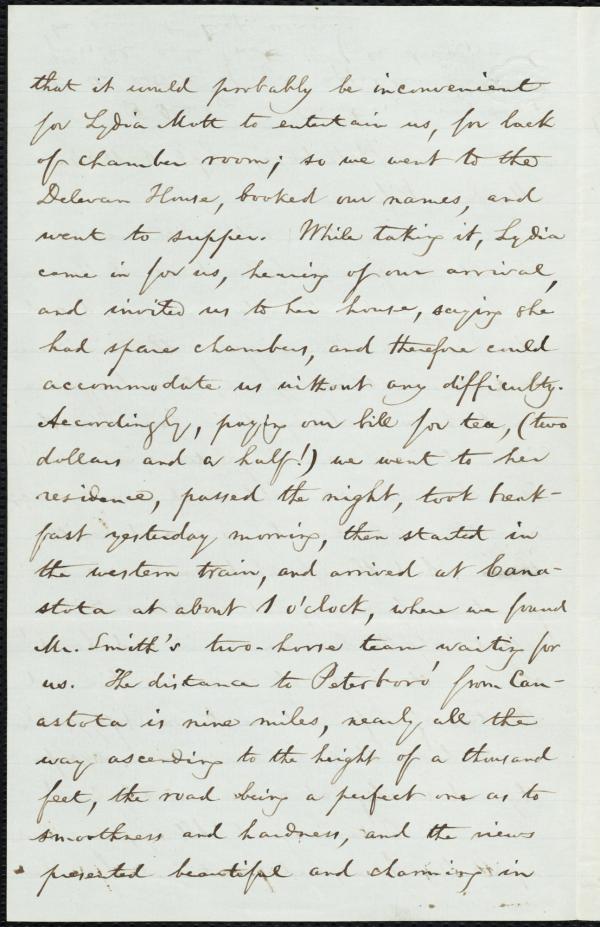 that it would probably be inconvenient
for Lydia Mott to entertain us, for lack
of chamber room; so we went to the
Delevan House, booked our names, and
went to supper. While taking it, Lydia
came in for us, hearing of our arrival,
and invited us to her house, saying she
had spare chambers, and therefore could
accommodate us without any difficulty.
Accordingly, paying our bill for tea, (two
dollars and a half!) we went to her
residence, passed the night, took break-
fast yesterday morning, then started in
the western train, and arrived at Cana-
stota at about 1 o'clock, where we found
Mr. Smith's two-horse team waiting for
us. The distance to Peterboro' from Can-
astota is nine miles, nearly all the
way ascending to the height of a thousand
feet, the road being a perfect one as to
smoothness and hardness, and the views
presented beautiful and charming in